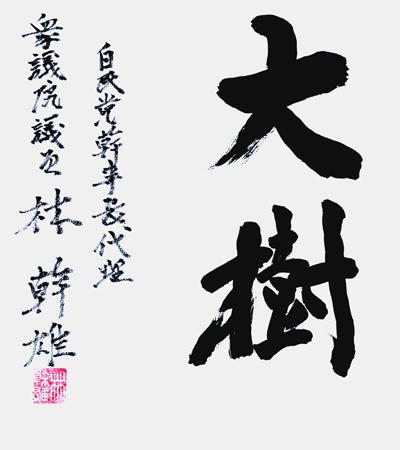 大樹
自民党幹事長代理
衆議院議員 林幹雄